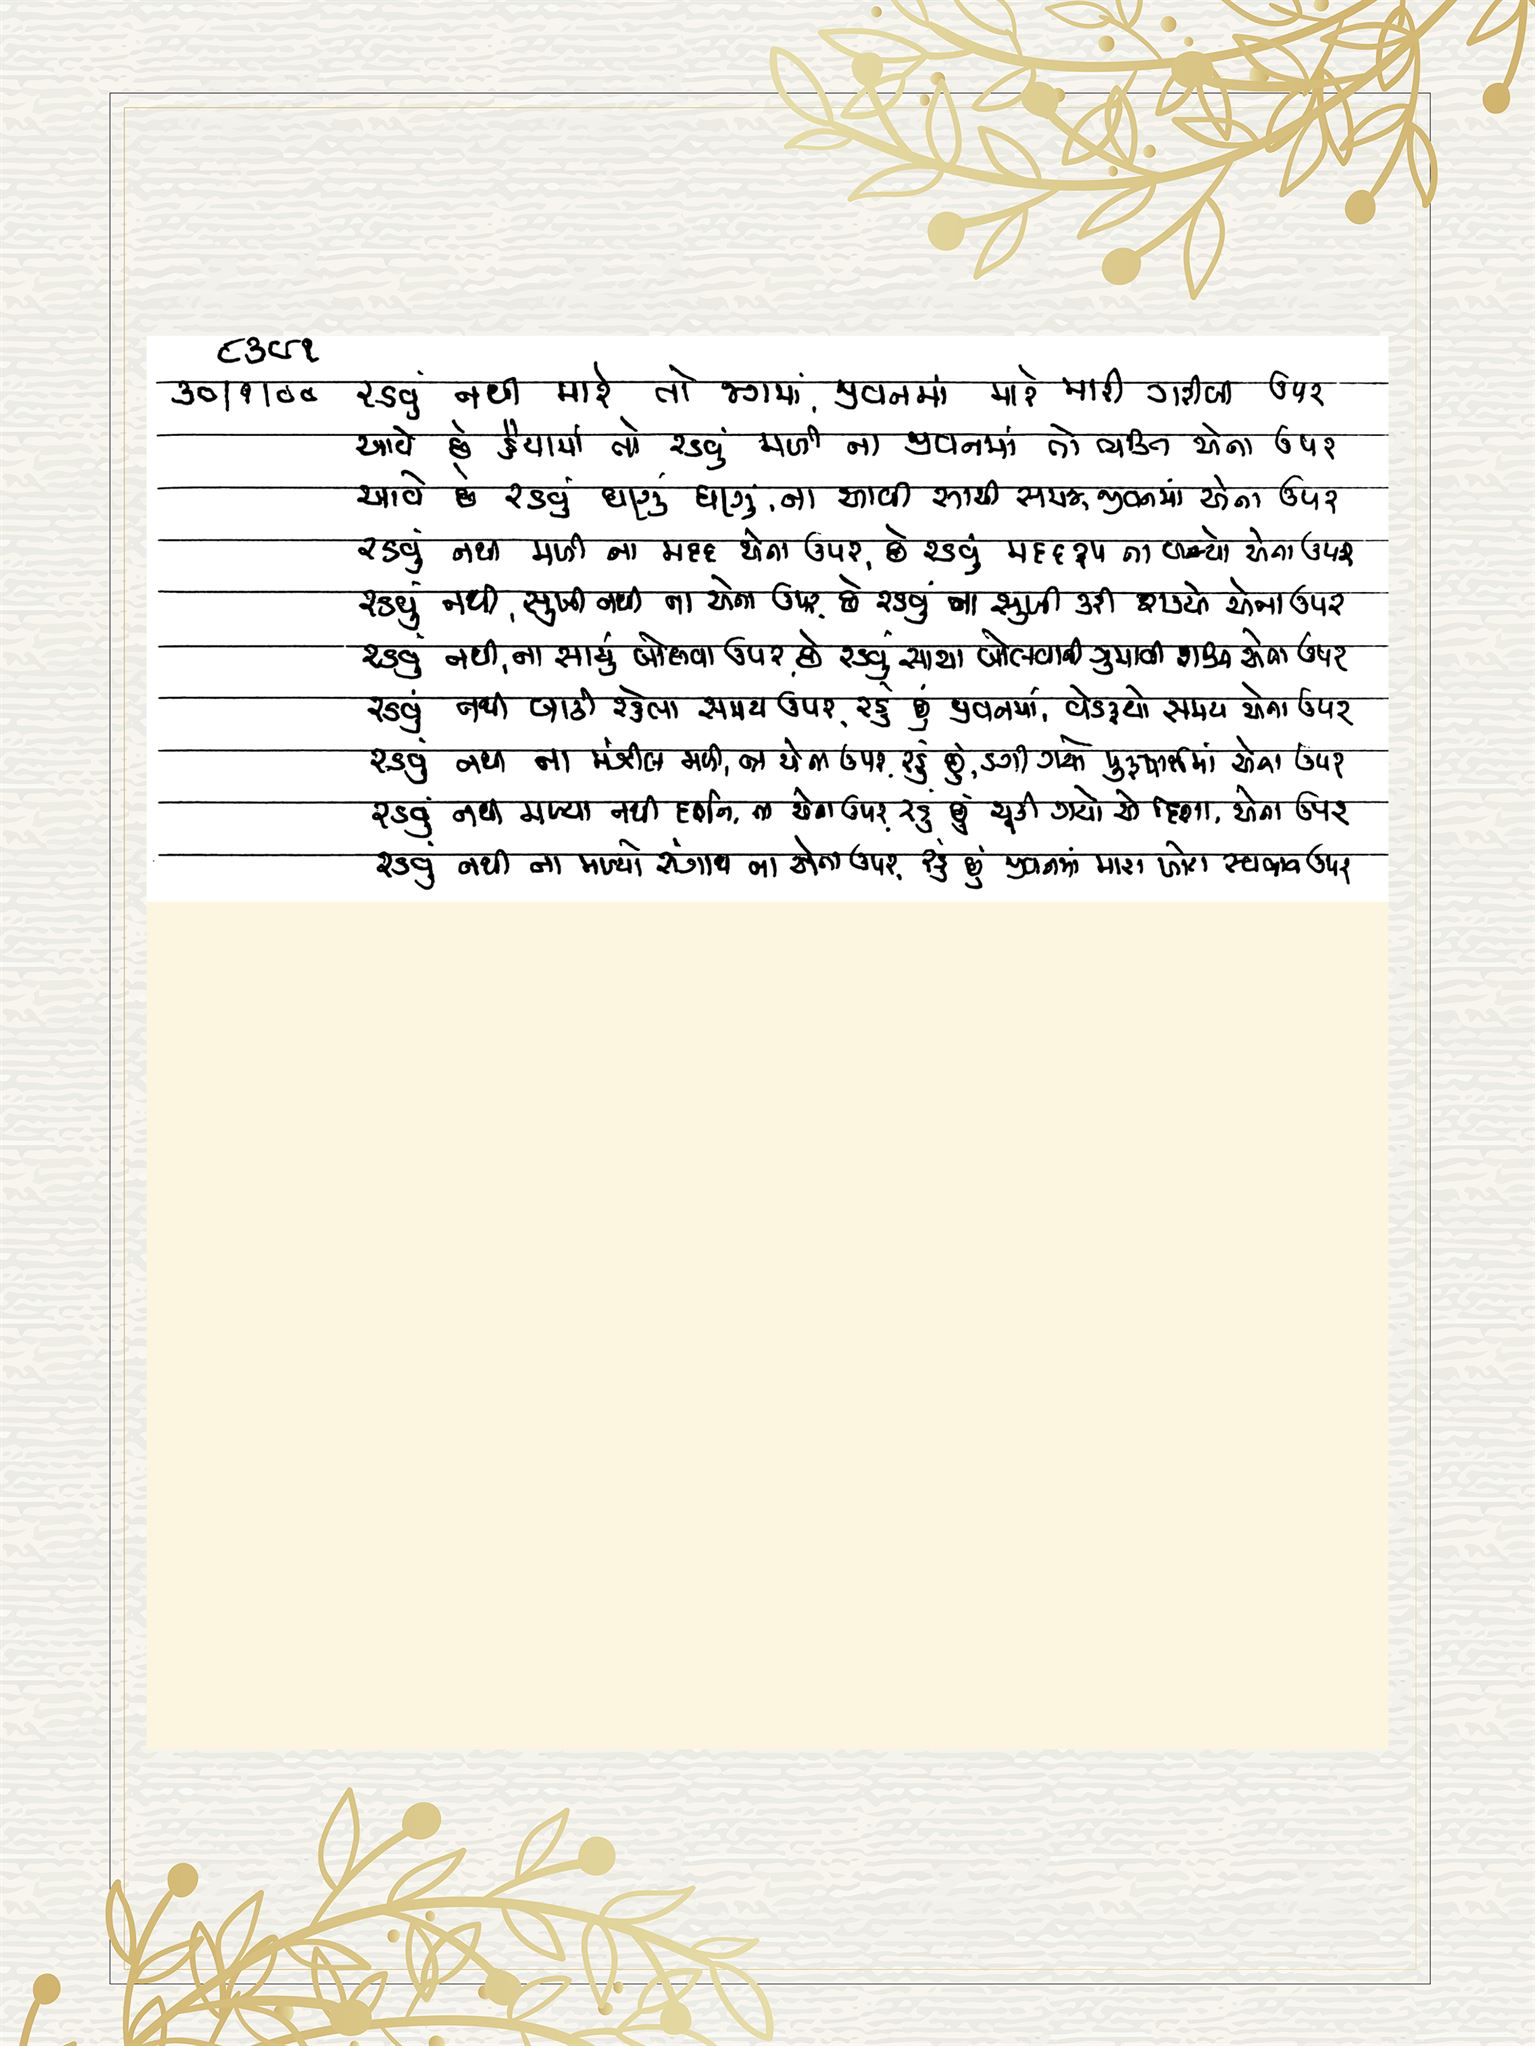 ૮૩૯૧
૩૦/૧/૦૦ રડવું નથી મારે તો જગમાં, જીવનમાં મારે મારી ગરીબી ઉપર
આવે છે હૈયામાં તો રડવું મળી ના જીવનમાં તો વ્યક્તિ એના ઉપર
આવે છે રડવું ઘણું ઘણું, ના આવી સાચી સમજ, જીવનમાં એના ઉપર
રડવું નથી મળી ના મદદ એના ઉપર, છે રડવું મદદરૂપ ના બન્યો એના ઉપર
રડવું નથી, સુખી નથી ના એના ઉપર, છે રડવું ના સુખી કરી શક્યો એના ઉપર
રડવું નથી, ના સાચું બોલવા ઉપર, છે રડવું સાચા બોલવાની ગુમાવી શક્તિ એના ઉપર
રડવું નથી બાકી રહેલા સમય ઉપર, રડું છું જીવનમાં, વેડફ્યો સમય એના ઉપર
રડવું નથી ના મંઝીલ મળી, ના એના ઉપર, રડું છું, ડગી ગયો પુરુષાર્થમાં એના ઉપર
રડવું નથી મળ્યા નથી દર્શન, ના એના ઉપર, રડું છું ચૂકી ગયો એ દિશા, એના ઉપર
રડવું નથી ના મળ્યો સંગાથ ના એના ઉપર, રડું છું જીવનમાં મારા ખોટા સ્વભાવ ઉપર